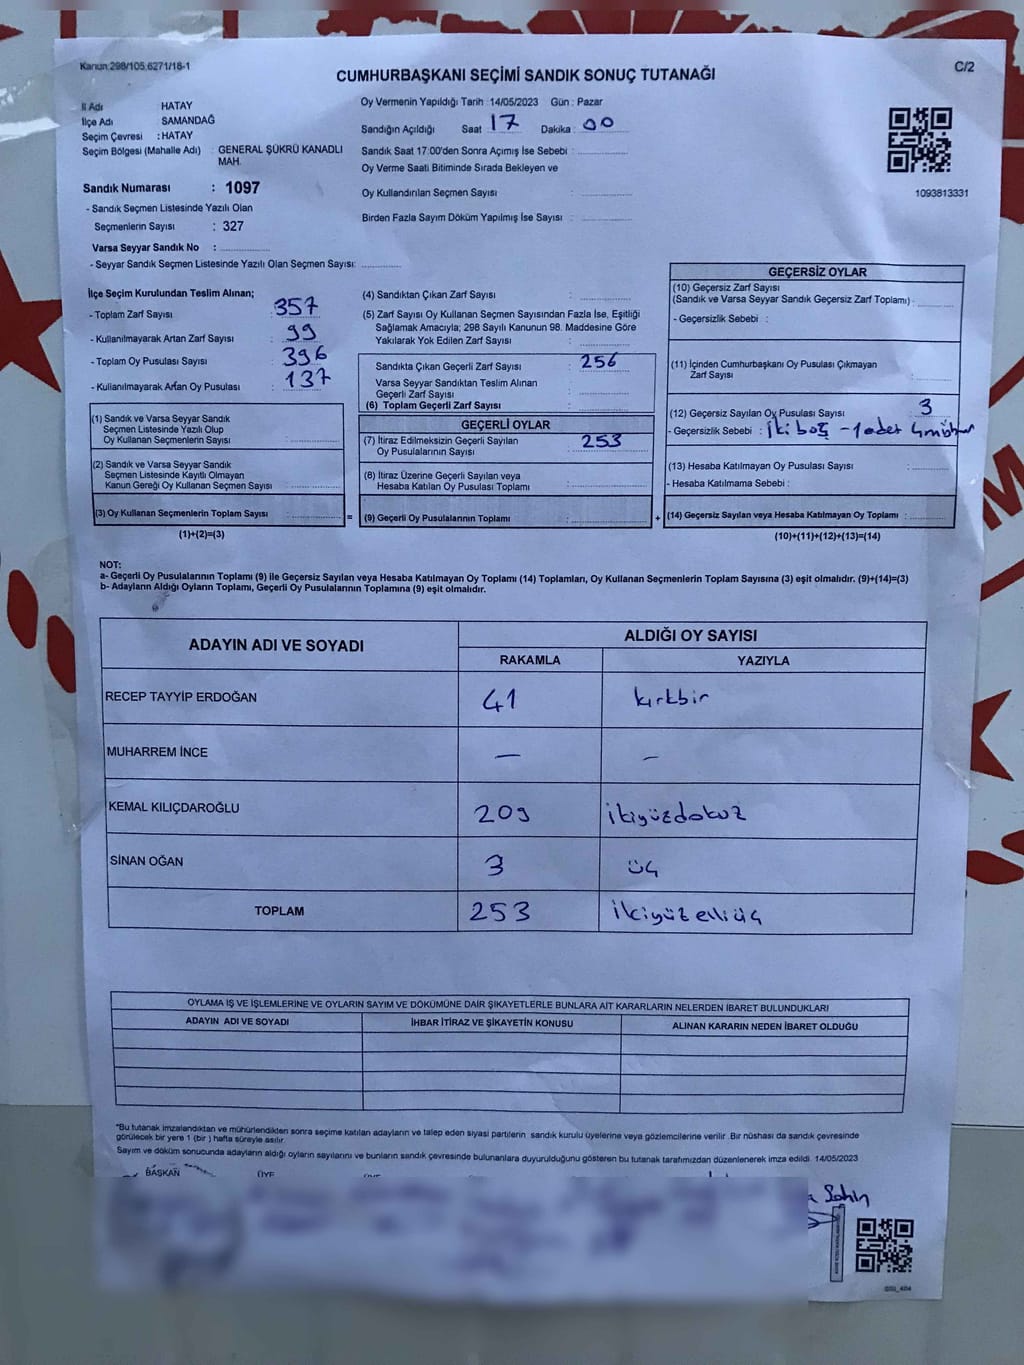 Kanun:298/105,6271/18-1
C/2
CUMHURBAŞKANI SEÇİMİ SANDIK SONUÇ TUTANAĞI
İl Adı : HATAY
İlçe Adı : SAMANDAĞ
Seçim Çevresi : HATAY
Seçim Bölgesi (Mahalle Adı) : GENERAL ŞÜKRÜ KANADLI
MAH.
Sandık Numarası : 1097
- Sandık Seçmen Listesinde Yazılı Olan
Seçmenlerin Sayısı : 327
Varsa Seyyar Sandık No :
- Seyyar Sandık Seçmen Listesinde Yazılı Olan Seçmen Sayısı:
Oy Vermenin Yapıldığı Tarih : 14/05/2023 Gün : Pazar
Sandığın Açıldığı Saat 17 Dakika : 00
Sandık Saat 17:00'den Sonra Açımış İse Sebebi :
Oy Verme Saati Bitiminde Sırada Bekleyen ve
Oy Kullandırılan Seçmen Sayısı :
Birden Fazla Sayım Döküm Yapılmış İse Sayısı :
1093813331
İlçe Seçim Kurulundan Teslim Alınan;
- Toplam Zarf Sayısı : 357
- Kullanılmayarak Artan Zarf Sayısı : 99
- Toplam Oy Pusulası Sayısı : 396
- Kullanılmayarak Artan Oy Pusulası : 137
(1) Sandık ve Varsa Seyyar Sandık
Seçmen Listesinde Yazılı Olup
Oy Kullanan Seçmenlerin Sayısı :
(2) Sandık ve Varsa Seyyar Sandık
Seçmen Listesinde Kayıtlı Olmayan
Kanun Gereği Oy Kullanan Seçmen Sayısı :
(3) Oy Kullanan Seçmenlerin Toplam Sayısı :
(1)+(2)=(3)
=
(4) Sandıktan Çıkan Zarf Sayısı :
(5) Zarf Sayısı Oy Kullanan Seçmen Sayısından Fazla İse, Eşitliği
Sağlamak Amacıyla; 298 Sayılı Kanunun 98. Maddesine Göre
Yakılarak Yok Edilen Zarf Sayısı :
Sandıkta Çıkan Geçerli Zarf Sayısı : 256
Varsa Seyyar Sandıktan Teslim Alınan
Geçerli Zarf Sayısı :
(6) Toplam Geçerli Zarf Sayısı :
GEÇERLİ OYLAR
(7) İtiraz Edilmeksizin Geçerli Sayılan
Oy Pusulalarının Sayısı : 253
(8) İtiraz Üzerine Geçerli Sayılan veya
Hesaba Katılan Oy Pusulası Toplamı :
(9) Geçerli Oy Pusulalarının Toplamı :
+
GEÇERSİZ OYLAR
(10) Geçersiz Zarf Sayısı
(Sandık ve Varsa Seyyar Sandık Geçersiz Zarf Toplamı) :
- Geçersizlik Sebebi :
(11) İçinden Cumhurbaşkanı Oy Pusulası Çıkmayan
Zarf Sayısı :
(12) Geçersiz Sayılan Oy Pusulası Sayısı : 3
- Geçersizlik Sebebi : İki boş - 1 adet
(13) Hesaba Katılmayan Oy Pusulası Sayısı :
- Hesaba Katılmama Sebebi :
(14) Geçersiz Sayılan veya Hesaba Katılmayan Oy Toplamı :
(10)+(11)+(12)+(13)=(14)
NOT:
a- Geçerli Oy Pusulalarının Toplamı (9) ile Geçersiz Sayılan veya Hesaba Katılmayan Oy Toplamı (14) Toplamları, Oy Kullanan Seçmenlerin Toplam Sayısına (3) eşit olmalıdır. (9)+(14)=(3)
b- Adayların Aldığı Oyların Toplamı, Geçerli Oy Pusulalarının Toplamına (9) eşit olmalıdır.
ADAYIN ADI VE SOYADI
ALDIĞI OY SAYISI
RAKAMLA YAZIYLA
RECEP TAYYİP ERDOĞAN 41 kırkbir
MUHARREM İNCE — –
KEMAL KILIÇDAROĞLU 209 ikiyüzdokuz
SİNAN OĞAN 3 üç
TOPLAM 253 ikiyüzelliüç
OYLAMA İŞ VE İŞLEMLERİNE VE OYLARIN SAYIM VE DÖKÜMÜNE DAİR ŞİKAYETLERLE BUNLARA AİT KARARLARIN NELERDEN İBARET BULUNDUKLARI
ADAYIN ADI VE SOYADI İHBAR İTİRAZ VE ŞİKAYETİN KONUSU ALINAN KARARIN NEDEN İBARET OLDUĞU
*Bu tutanak imzalandıktan ve mühürlendikten sonra seçime katılan adayların ve talep eden siyasi partilerin sandık kurulu üyelerine veya gözlemcilerine verilir. Bir nüshası da sandık çevresinde
görülecek bir yere 1 (bir) hafta süreyle asılır.
Sayım ve döküm sonucunda adayların aldığı oyların sayılarını ve bunların sandık çevresinde bulunanlara duyurulduğunu gösteren bu tutanak tarafımızdan düzenlenerek imza edildi. 14/05/2023
BAŞKAN ÜYE
Şahin